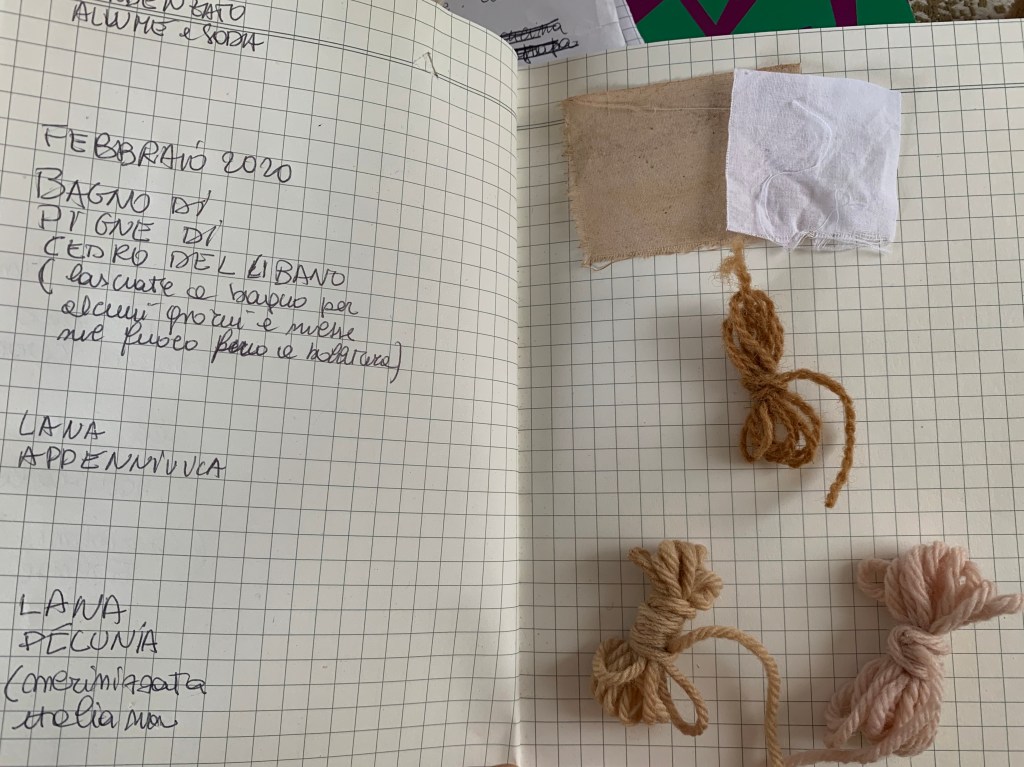 ALLUME e SODA
FEBBRAIO 2020
BAGNO DI
PIGNE DI
CEDRO DEL LIBANO
(lasciate a bagno per
alcuni giorni e messe
sul fuoco fino a bollitura)
LANA
APPENNINICA
LANA
PECUNIA
(merinizzata
italiana